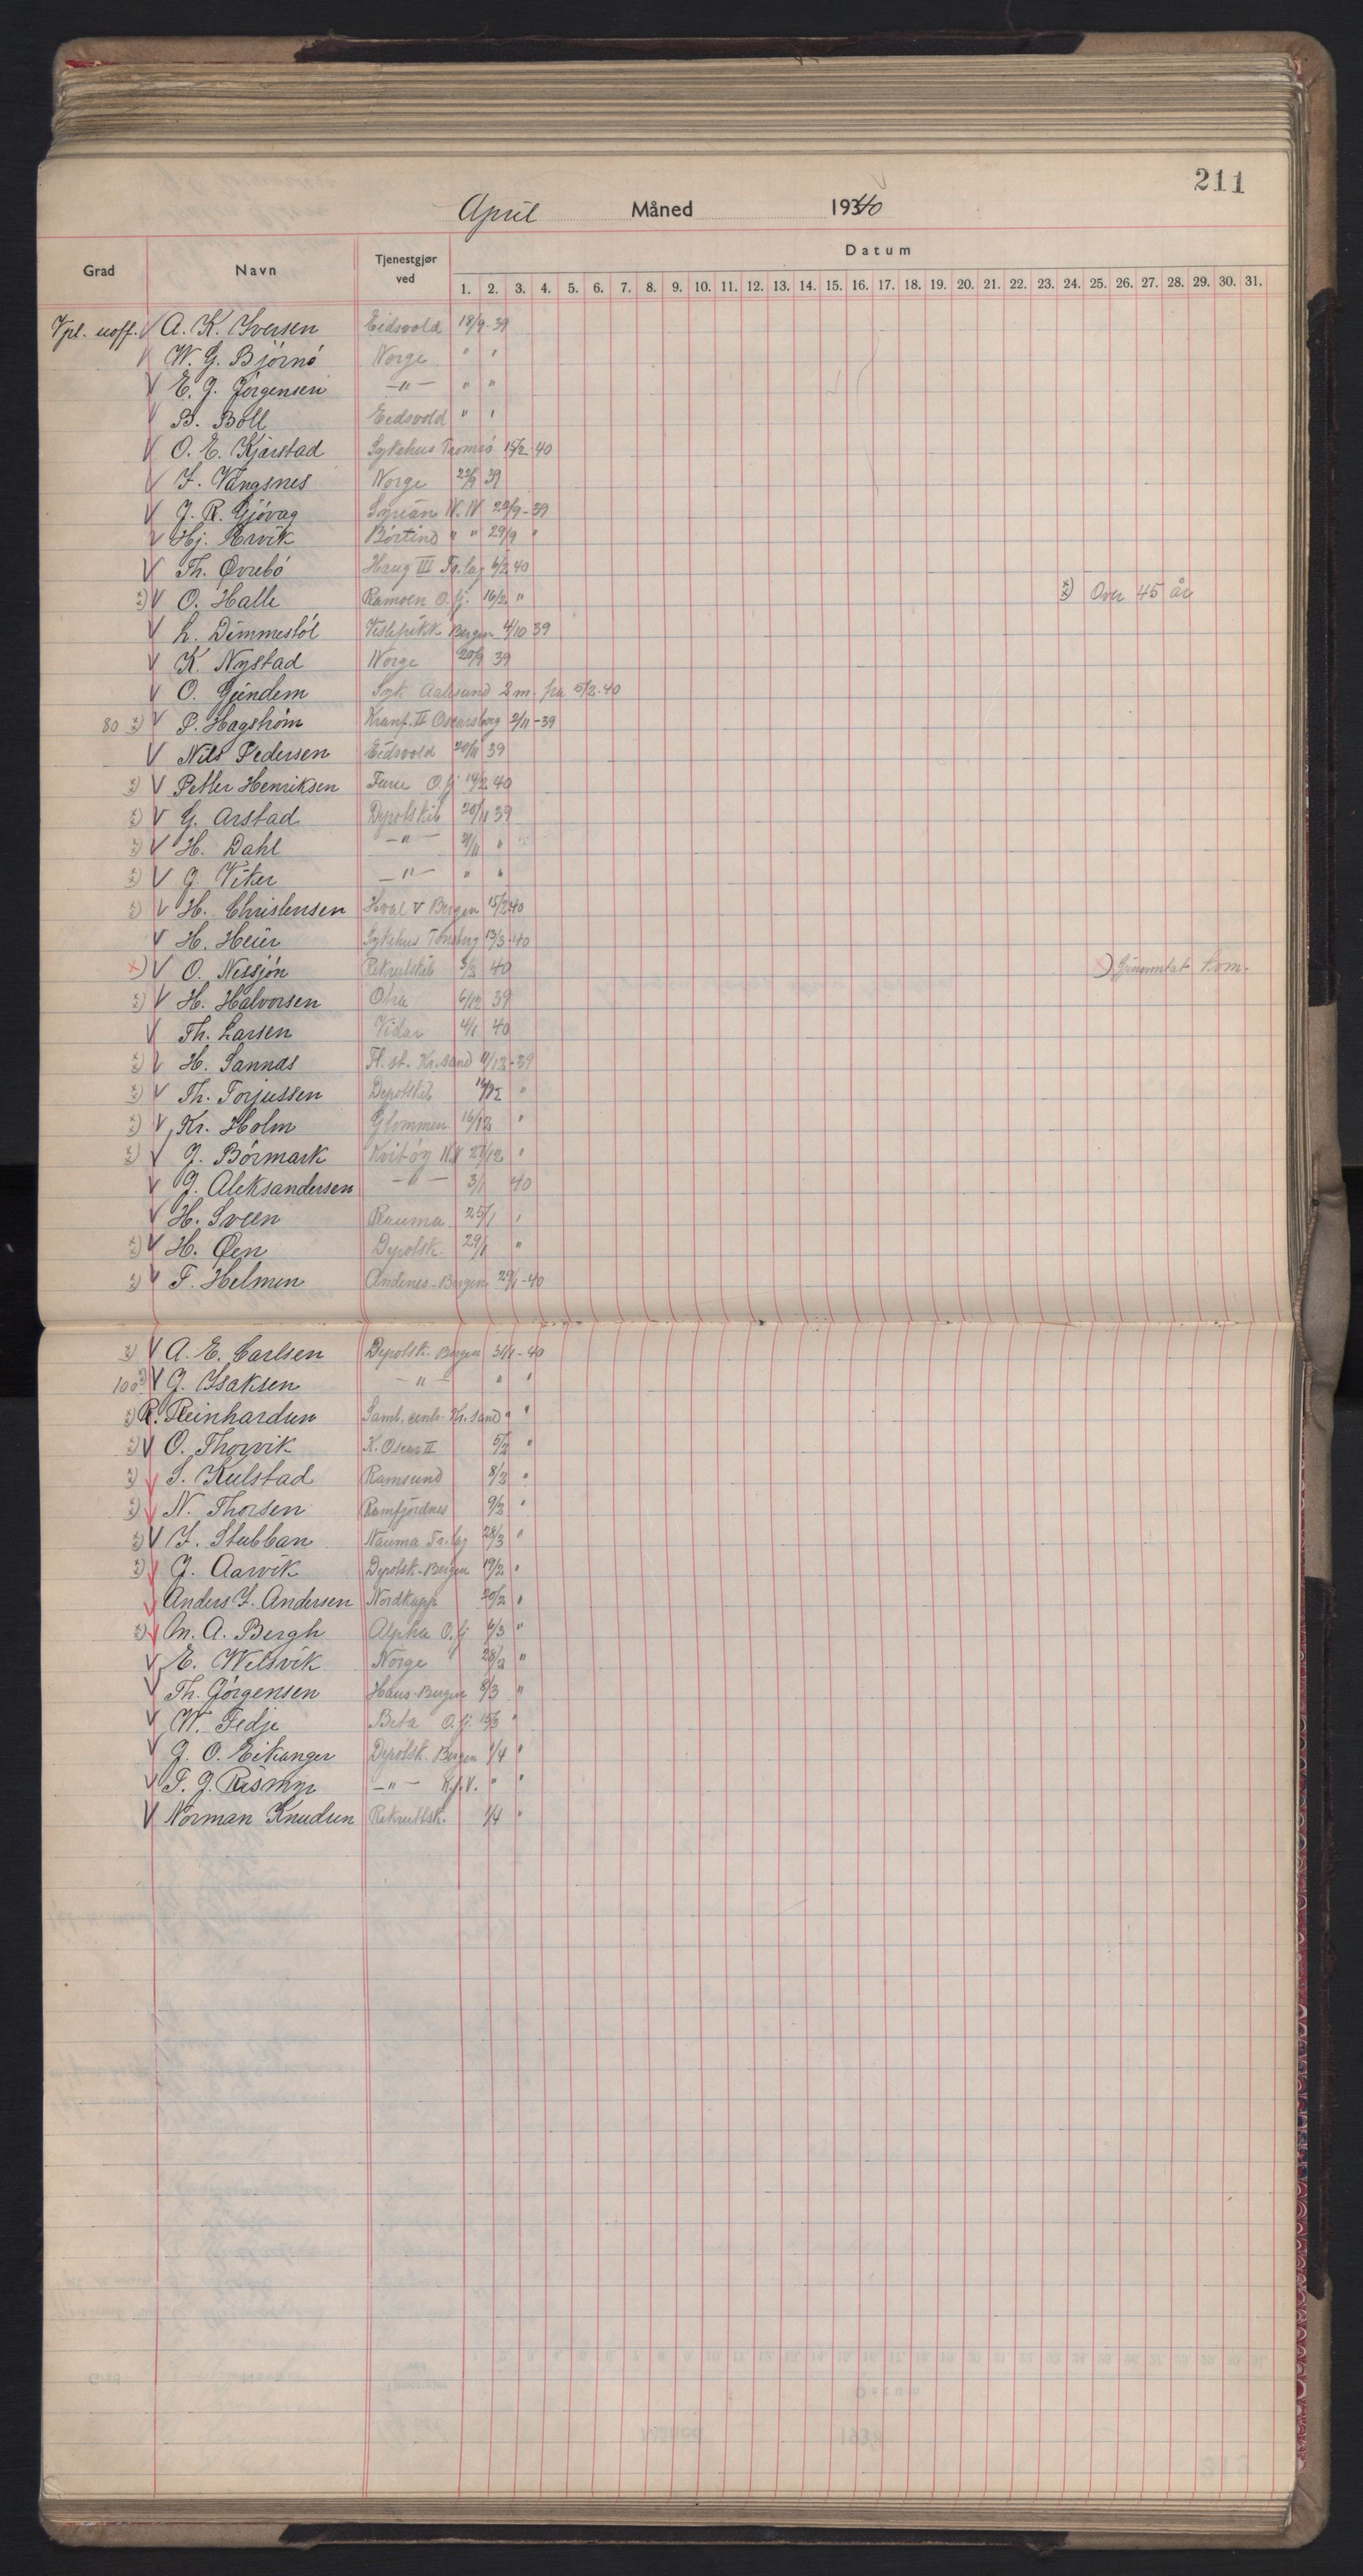 211
April Måned 1940
Grad Navn Tjenestgjør ved Datum
1. 2. 3. 4. 5. 6. 7. 8. 9. 10. 11. 12. 13. 14. 15. 16. 17. 18. 19. 20. 21. 22. 23. 24. 25. 26. 27. 28. 29. 30. 31.
Vpl. uoff. V A. K. Iversen Eidsvold 18/9-39
V W. G. Bjørnø Norge " "
V E. J. Jørgensen -"- " "
V B. Boll Eidsvold " "
V O. E. Kjarstad Sykehus Tromsö 15/2-40
V I. Vangsnes Norge 22/9 39
V J. R. Gjövag Syrian N.N 23/9-39
V Hj. Ervik Börtind " " 29/9 "
V Th. Övrebö Haug III Tr.lag 6/2 40
x) V O. Halle Ramoen O.fj. 16/2 " x) Over 45 år
V L. Dimmestöl Veslefrikk Bergen 4/10 39
V K. Nystad Norge 20/9 39
V O. Gjendem Syk Aalesund 2 m. fra 5/2-40
80 x) V P. Hagström Kranf. II Oscarsborg 2/11-39
V Nils Pedersen Eidsvold 20/11 39
x) V Petter Henriksen Furu O.fj 14/2 40
x) V G. Arstad Depotskib 20/11 39
x) V H. Dahl -"- 21/11 "
x) V J. Viker -"- " "
x) V H. Christensen Hval V Bergen 15/2 40
V H. Heier Sykehus Tönsberg 13/3-40
x) V O. Nessjön Rekrutskib 3/3 40 x) Gjenomlat kom.
x) V H. Halvorsen Otra 6/12 39
V Th. Larsen Vidar 4/1 40
x) V H. Sannes Fl. st. Kr.sand 11/12-39
x) V Th. Torjussen Depotskib 16/12 "
x) V Kr. Holm Glommen 16/12 "
x) V J. Börmark Kvitöy N.V 27/12 "
V J. Aleksandersen -"- 3/1 40
V H. Sveen Rauma 25/1 "
x) V H. Öen Depotsk. 29/1 "
x) V F. Helmen Andenes-Bergen 29/1-40
x) V A. E. Carlsen Depotsk. Bergen 31/1-40
100 x) V J. Isaksen -"- " "
x) R. Reinhardsen Samb. centr. Kr.sand " "
x) V O. Thorvik K. Oscar II 5/2 "
x) V S. Kulstad Ramsund 8/2 "
x) V N. Thorsen Ramfjordnes 9/2 "
x) V I. Stubban Nauma Tr.lag 28/3 "
x) V J. Aarvik Depotsk-Bergen 19/2 "
V Anders I. Andersen Nordkapp 20/2 "
x) V M. A. Bergh Alpha O.fj 6/3 "
V E. Welsvik Norge 28/2 "
V Th. Jörgensen Haus-Bergen 8/3 "
V W. Fedje Beta O.fj. 15/3 "
V J. O. Eikanger Depotsk. Bergen 1/4 "
V F. J. Rismyr -"- K.j.V. " "
V Norman Knudsen Rekruttsk. 1/4 "